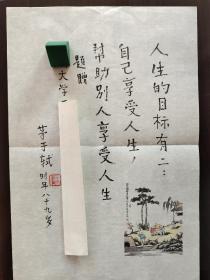 人生的目标有二：
自己享受人生，
帮助别人享受人生
题赠
大学
茅于轼
时年八十九岁